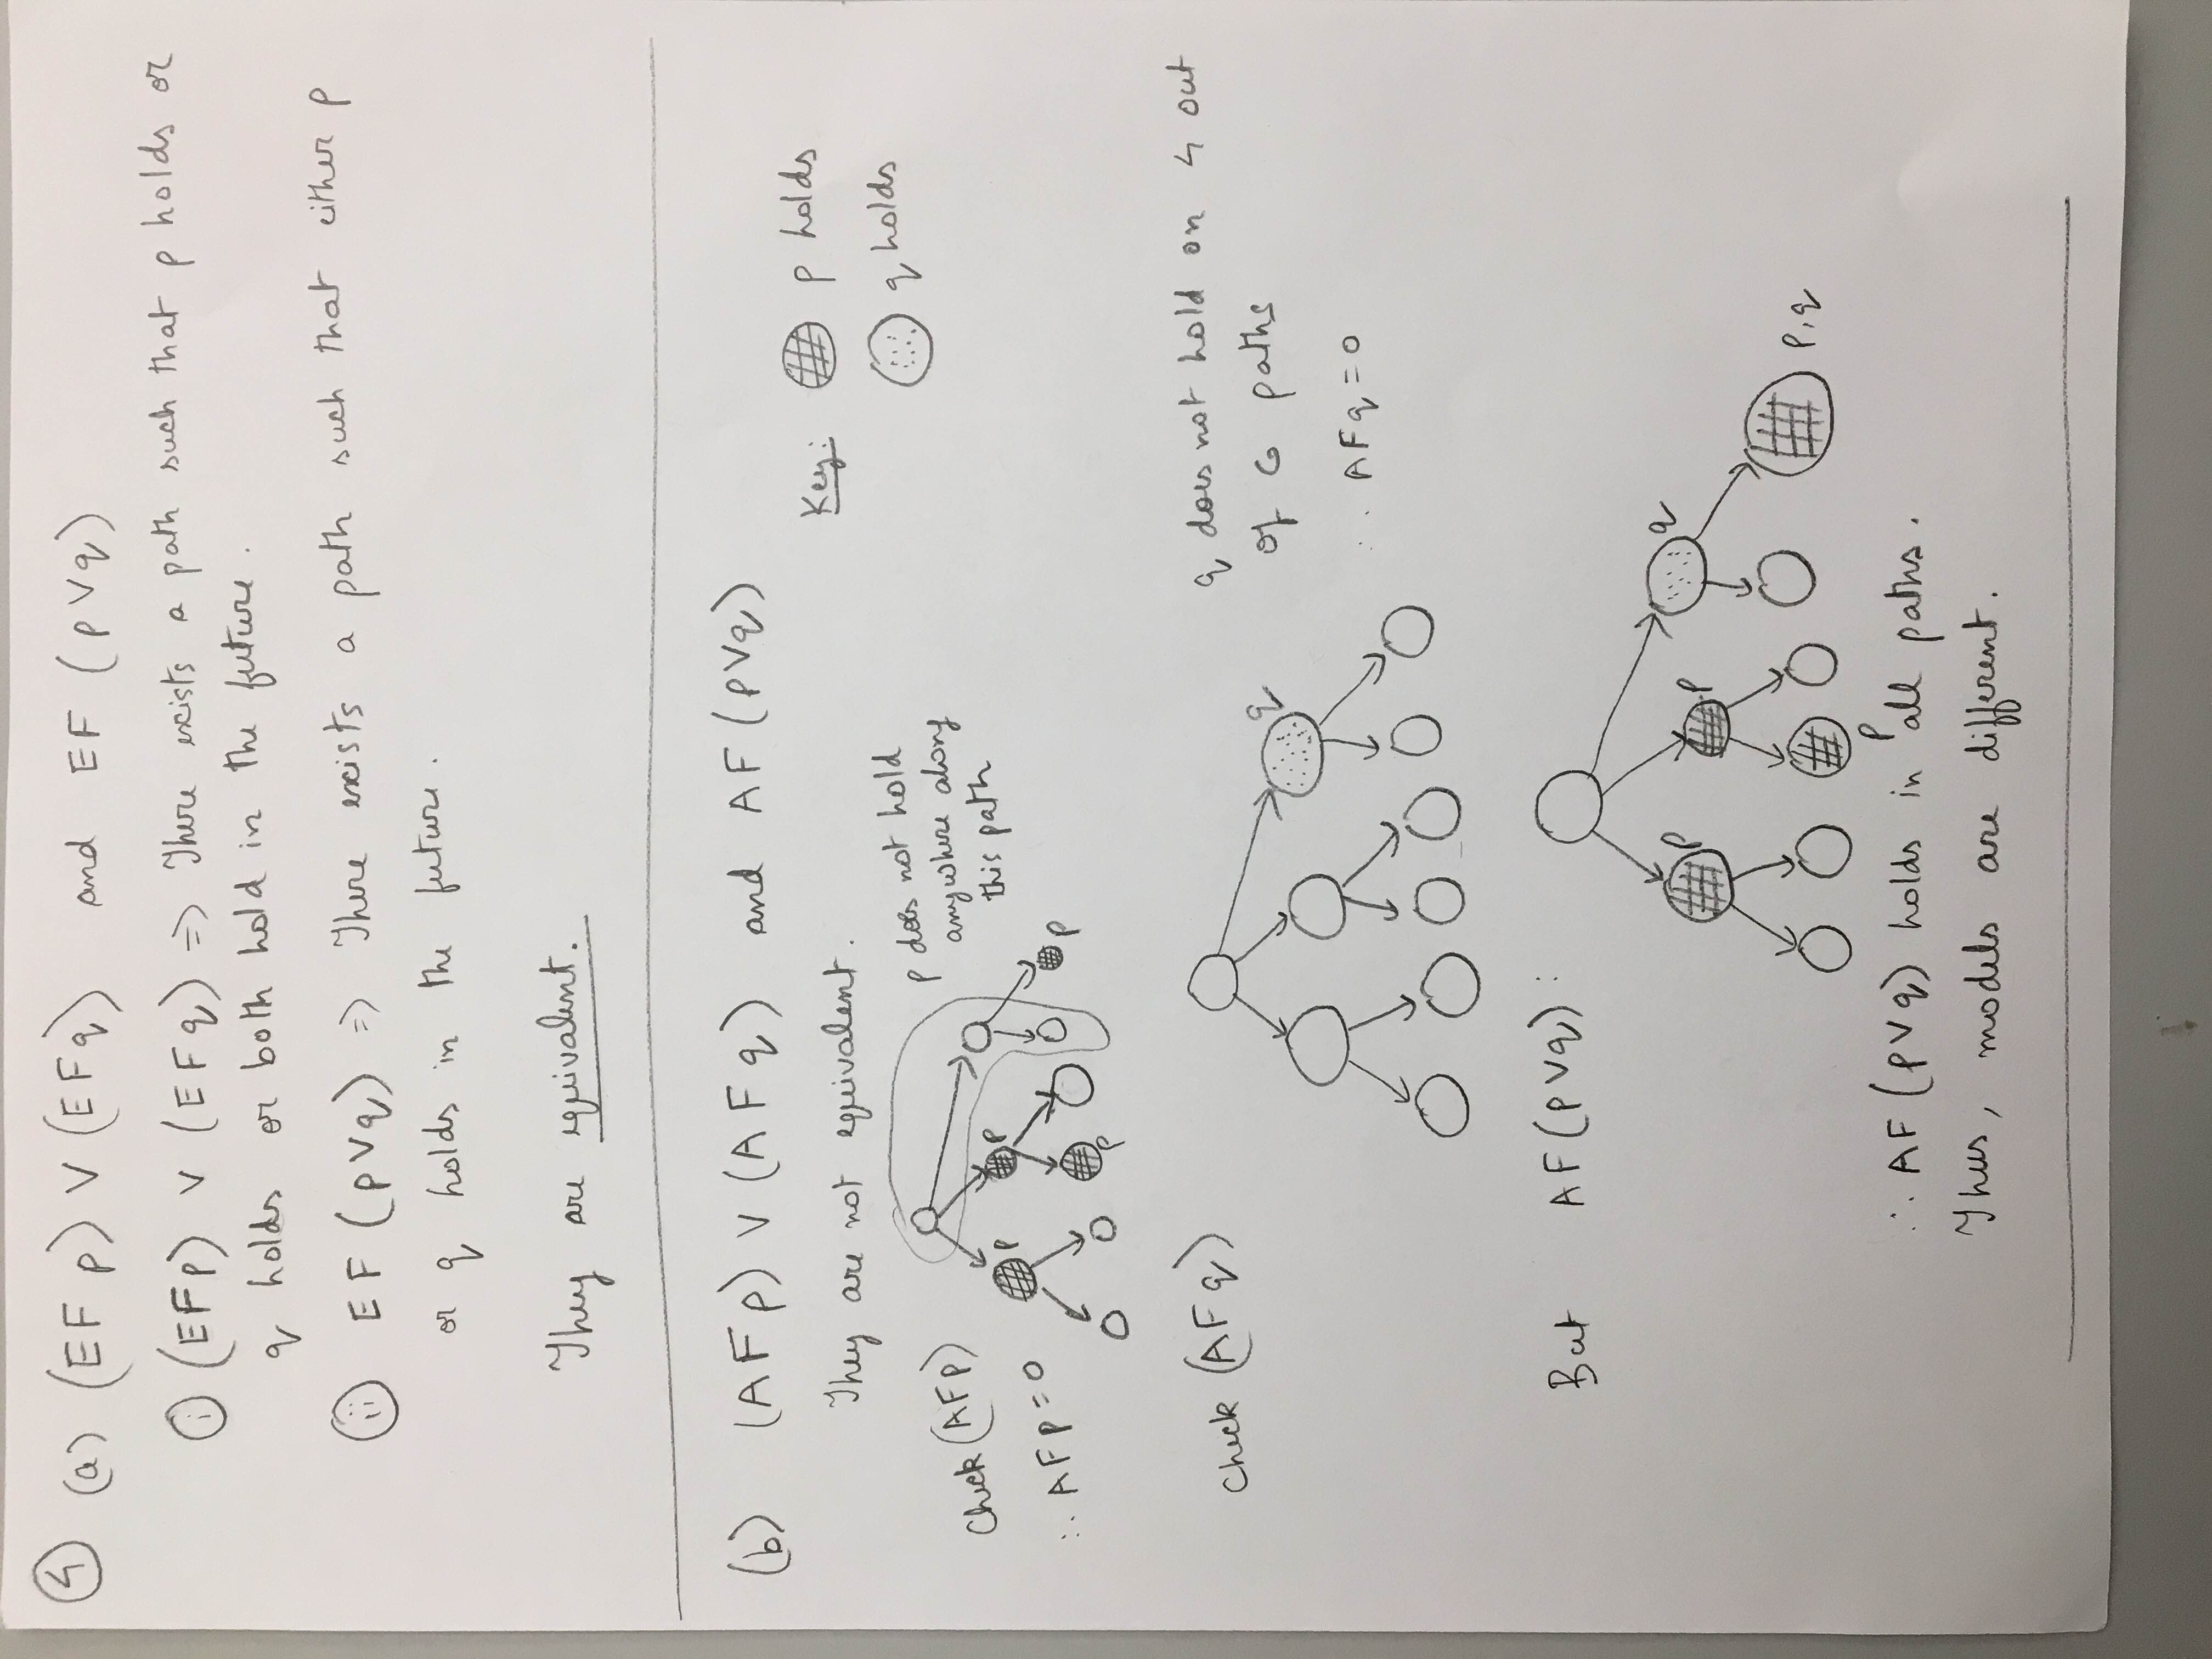 4 (a) (EF p) ∨ (EFq) and EF (p∨q)
i (EFp) ∨ (EFq) => There exists a path such that p holds or
q holds or both hold in the future.
ii EF (p∨q) => There exists a path such that either p
or q holds in the future.
They are equivalent.
(b) (AFp) ∨ (AFq) and AF(p∨q)
Key: p holds
q holds
They are not equivalent.
Check (AFp)
∴ AFp=0
p
p
p
p
p does not hold
anywhere along
this path
Check (AFq)
q
q does not hold on 4 out
of 6 paths
∴ AFq=0
But AF(p∨q):
p
p
q
p
p,q
∴ AF(p∨q) holds in all paths.
Thus, models are different.